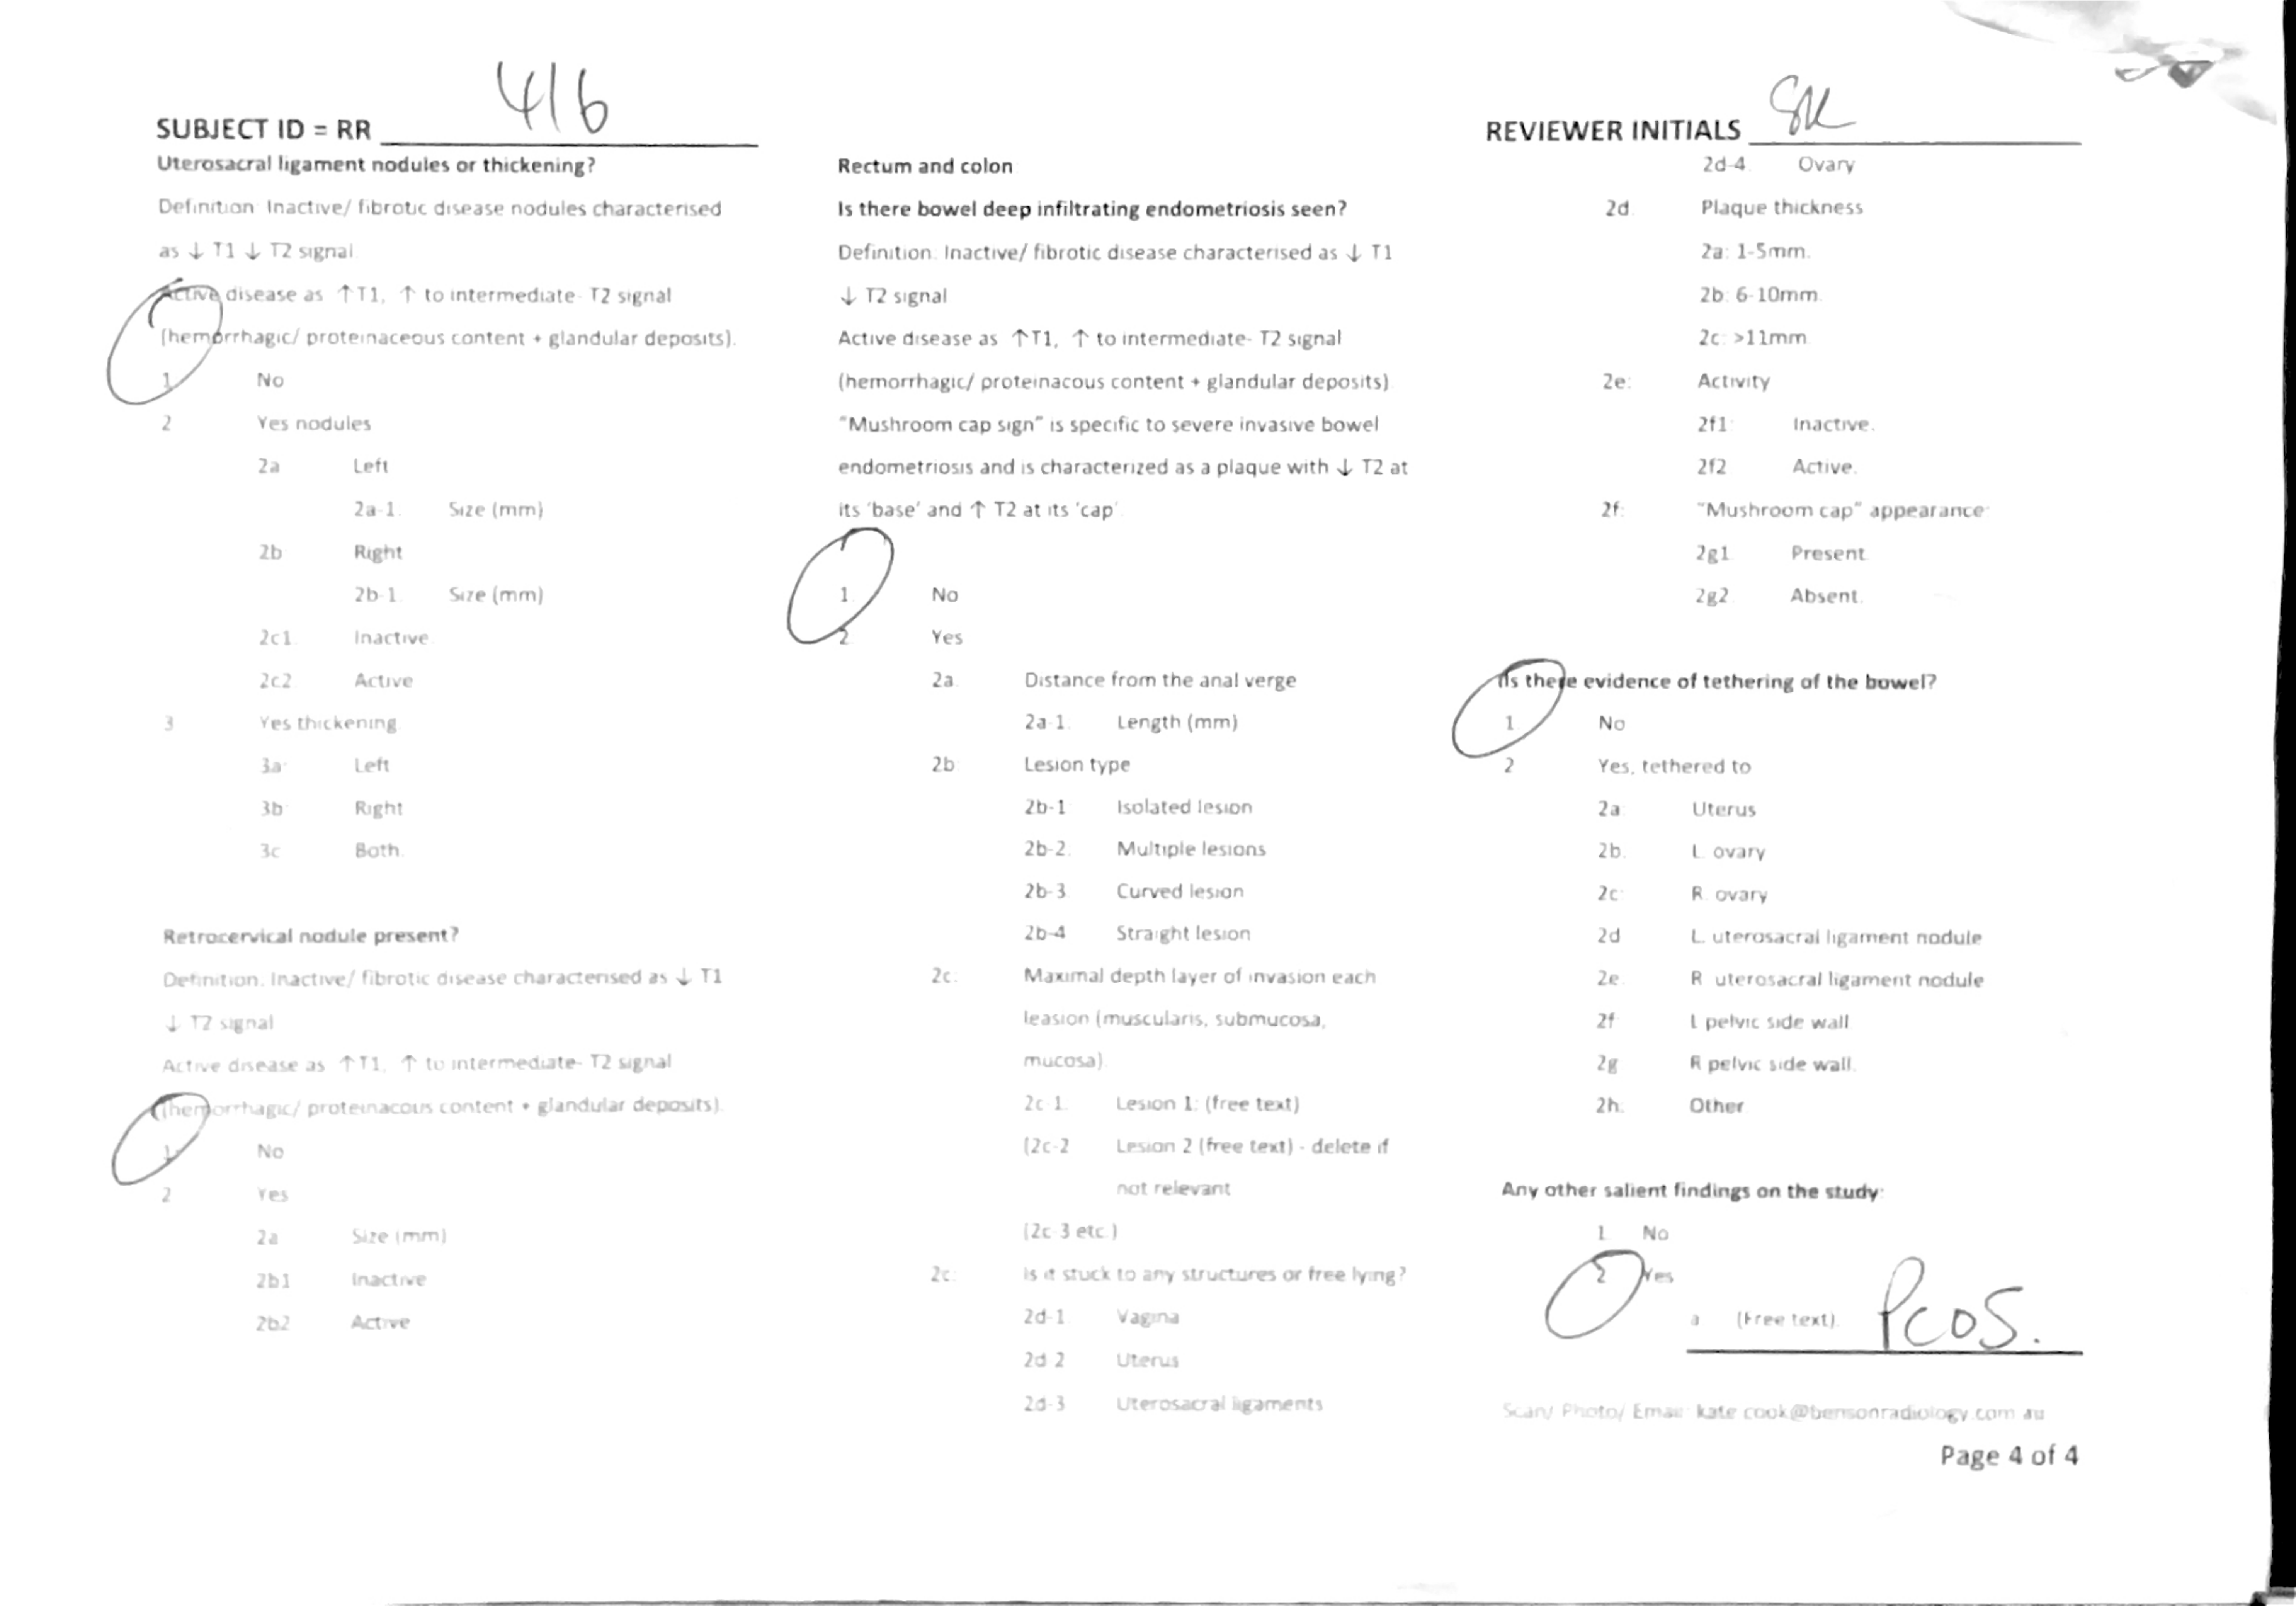 SUBJECT ID = RR 416
REVIEWER INITIALS SK
Uterosacral ligament nodules or thickening?
Definition: Inactive/ fibrotic disease nodules characterised
as ↓ T1 ↓ T2 signal
Active disease as ↑T1, ↑ to intermediate- T2 signal
(hemorrhagic/ proteinaceous content + glandular deposits).
1 No
2 Yes nodules
2a Left
2a-1. Size (mm)
2b Right
2b-1. Size (mm)
2c1. Inactive.
2c2 Active
3 Yes thickening
3a: Left
3b: Right
3c Both.
Retrocervical nodule present?
Definition. Inactive/ fibrotic disease characterised as ↓ T1
↓ T2 signal
Active disease as ↑T1, ↑ to intermediate- T2 signal
(hemorrhagic/ proteinacous content + glandular deposits).
1. No
2 Yes
2a Size (mm)
2b1 Inactive
2b2 Active
Rectum and colon
Is there bowel deep infiltrating endometriosis seen?
Definition. Inactive/ fibrotic disease characterised as ↓ T1
↓ T2 signal
Active disease as ↑T1, ↑ to intermediate- T2 signal
(hemorrhagic/ proteinacous content + glandular deposits).
"Mushroom cap sign" is specific to severe invasive bowel
endometriosis and is characterized as a plaque with ↓ T2 at
its 'base' and ↑ T2 at its 'cap'.
1. No
2. Yes
2a. Distance from the anal verge
2a-1. Length (mm)
2b: Lesion type
2b-1 Isolated lesion
2b-2. Multiple lesions
2b-3 Curved lesion
2b-4 Straight lesion
2c: Maximal depth layer of invasion each
leasion (muscularis, submucosa,
mucosa).
2c-1. Lesion 1: (free text)
(2c-2 Lesion 2 (free text) - delete if
not relevant
(2c-3 etc.)
2c: Is it stuck to any structures or free lying?
2d-1 Vagina
2d-2 Uterus
2d-3 Uterosacral ligaments
2d-4. Ovary
2d. Plaque thickness
2a: 1-5mm.
2b: 6-10mm.
2c: >11mm
2e: Activity
2f1: Inactive.
2f2 Active.
2f: "Mushroom cap" appearance:
2g1 Present.
2g2. Absent.
Is there evidence of tethering of the bowel?
1. No
2 Yes, tethered to
2a: Uterus
2b. L. ovary
2c: R. ovary
2d L. uterosacral ligament nodule
2e. R. uterosacral ligament nodule
2f: L pelvic side wall
2g R pelvic side wall.
2h. Other
Any other salient findings on the study:
1. No
2 Yes
a (Free text). PCOS.
Scan/ Photo/ Email: kate.cook@bensonradiology.com.au
Page 4 of 4